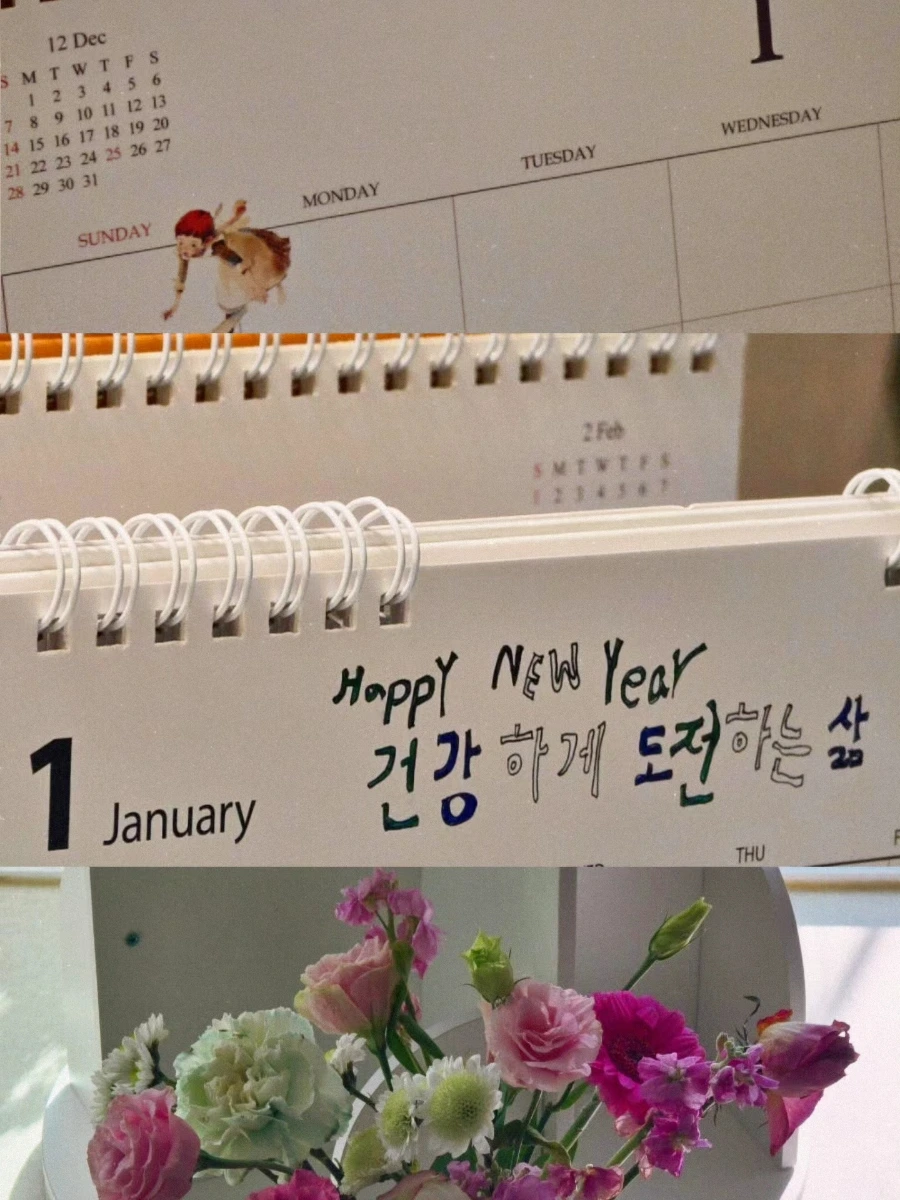 12 Dec
S M T W T F S
1 2 3 4 5 6
7 8 9 10 11 12 13
14 15 16 17 18 19 20
21 22 23 24 25 26 27
28 29 30 31
1
SUNDAY MONDAY TUESDAY WEDNESDAY
2 Feb
S M T W T F S
1 2 3 4 5 6 7
Happy NEW Year
건강하게 도전하는 삶
1 January
THU